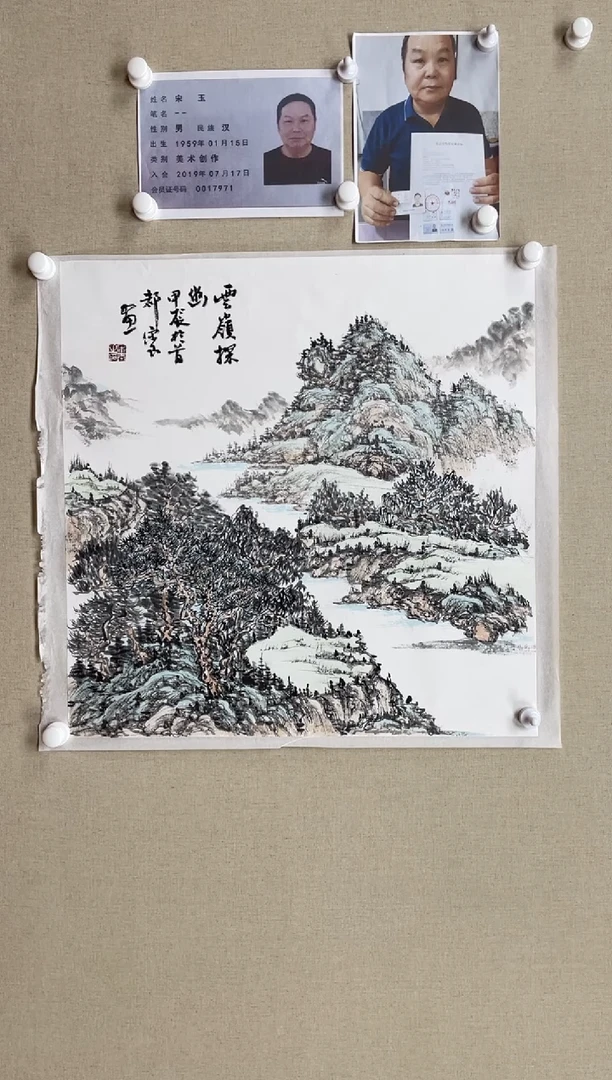 姓名 宋 玉
笔名 --
性别 男 民族 汉
出生 1959年01月15日
类别 美术创作
入会 2019年07月17日
会员证号码 0017971
雲嶺探
幽
甲辰於首
都宋玉
畫